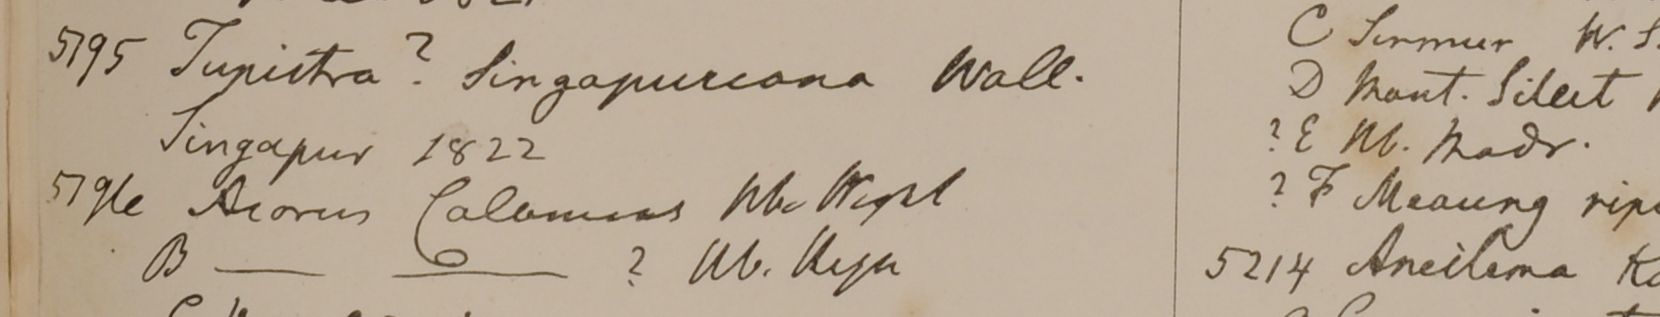 5195 Tupistra? Singapureana Wall.
Singapur 1822
5196 Acorus Calamus Hb. Wight
B — — ? Hb. Heyn
C Sirmur W. S.
D Mont. Silcet
? E Hb. Madr.
? F Meaung rip
5214 Aneilema